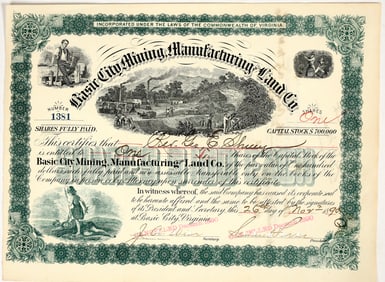 INCORPORATED UNDER THE LAWS OF THE COMMONWEALTH OF VIRGINIA.
Basic City Mining, Manufacturing and Land Co.
NUMBER
1381
SHARES
One
SHARES FULLY PAID.
CAPITAL STOCK $700,000
This certifies that Geo. E.
is entitled to One Shares of the Capital Stock of the
Basic City Mining, Manufacturing and Land Co. of the par value of one hundred
dollars each fully paid and non assessable transferable only on the books of the
Company in person or by Attorney upon surrender of this certificate.
In witness whereof, the said Company has caused its corporate seal
to be hereunto affixed and the same to be attested by the signatures
of its President and Secretary this 26 day of Nov 189
at Basic City, Virginia.
Secretary
President